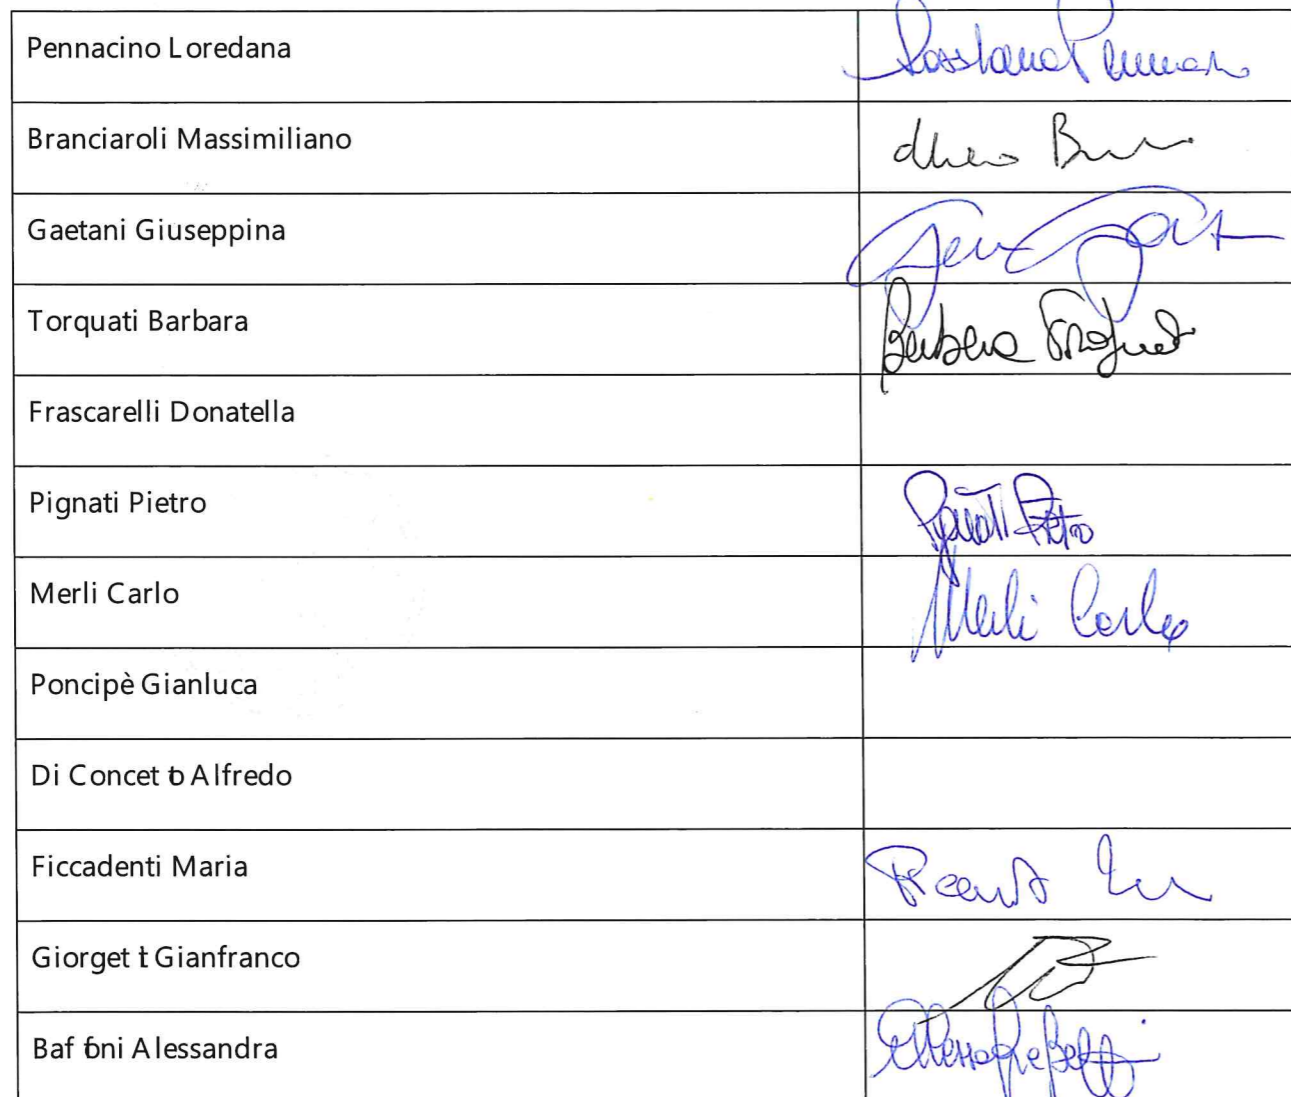 Pennacino Loredana
Branciaroli Massimiliano
Gaetani Giuseppina
Torquati Barbara Barbara
Frascarelli Donatella
Pignati Pietro
Merli Carlo Merli Carlo
Poncipè Gianluca
Di Concetto Alfredo
Ficcadenti Maria
Giorgetti Gianfranco
Baffoni Alessandra